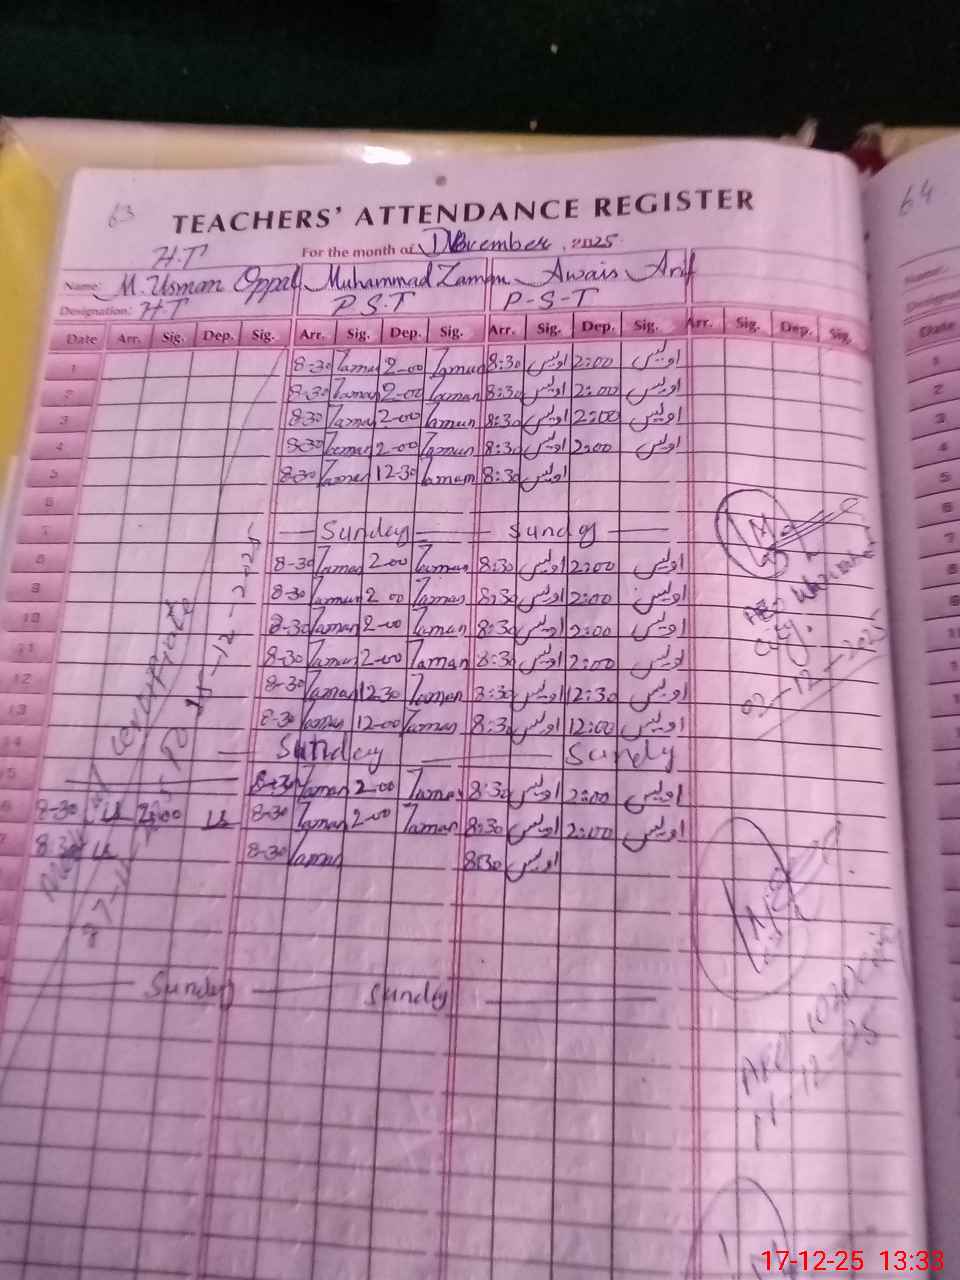 63
64
TEACHERS' ATTENDANCE REGISTER
H.T
For the month of December, 2025
Name: M. Usman Oppal Muhammad Zaman Awais Arif
Designation: H T P S.T P-S-T
Date Arr. Sig. Dep. Sig. Arr. Sig. Dep. Sig. Arr. Sig. Dep. Sig. Arr. Sig. Dep. Sig.
1 8-30 Zaman 2-00 Zaman 8:30 اویس 2:00 اویس
2 8-30 Zaman 2-00 Zaman 8:30 اویس 2:00 اویس
3 8-30 Zaman 2-00 Zaman 8:30 اویس 2:00 اویس
4 8-30 Zaman 2-00 Zaman 8:30 اویس 2:00 اویس
5 8-30 Zaman 12-30 Zaman 8:30 اویس
6
7 Sunday Sundy
8 8-30 Zaman 2-00 Zaman 8:30 اویس 2:00 اویس
9 8-30 Zaman 2 00 Zaman 8:30 اویس 2:00 اویس
10 8-30 Zaman 2-00 Zaman 8:30 اویس 2:00 اویس
11 8-30 Zaman 2-00 Zaman 8:30 اویس 2:00 اویس
12 8-30 Zaman 12-30 Zaman 8:30 اویس 12:30 اویس
13 8-30 Zaman 12-00 Zaman 8:30 اویس 12:00 اویس
14 Sunday Sundy
15 8-30 Zaman 2-00 Zaman 8:30 اویس 2:00 اویس
8-30 2:00 8-30 Zaman 2-00 Zaman 8:30 اویس 2:00 اویس
8-30 8-30 Zaman 8:30 اویس
Sunday Sunday
City.
02-12-2025
17-12-25 13:33